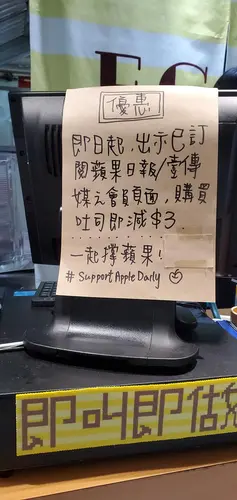 優惠
即日起，出示已訂
閱蘋果日報/壹傳
媒之會員頁面，購買
吐司即減$3.
一起撐蘋果！
#SupportAppleDaily
即叫即估